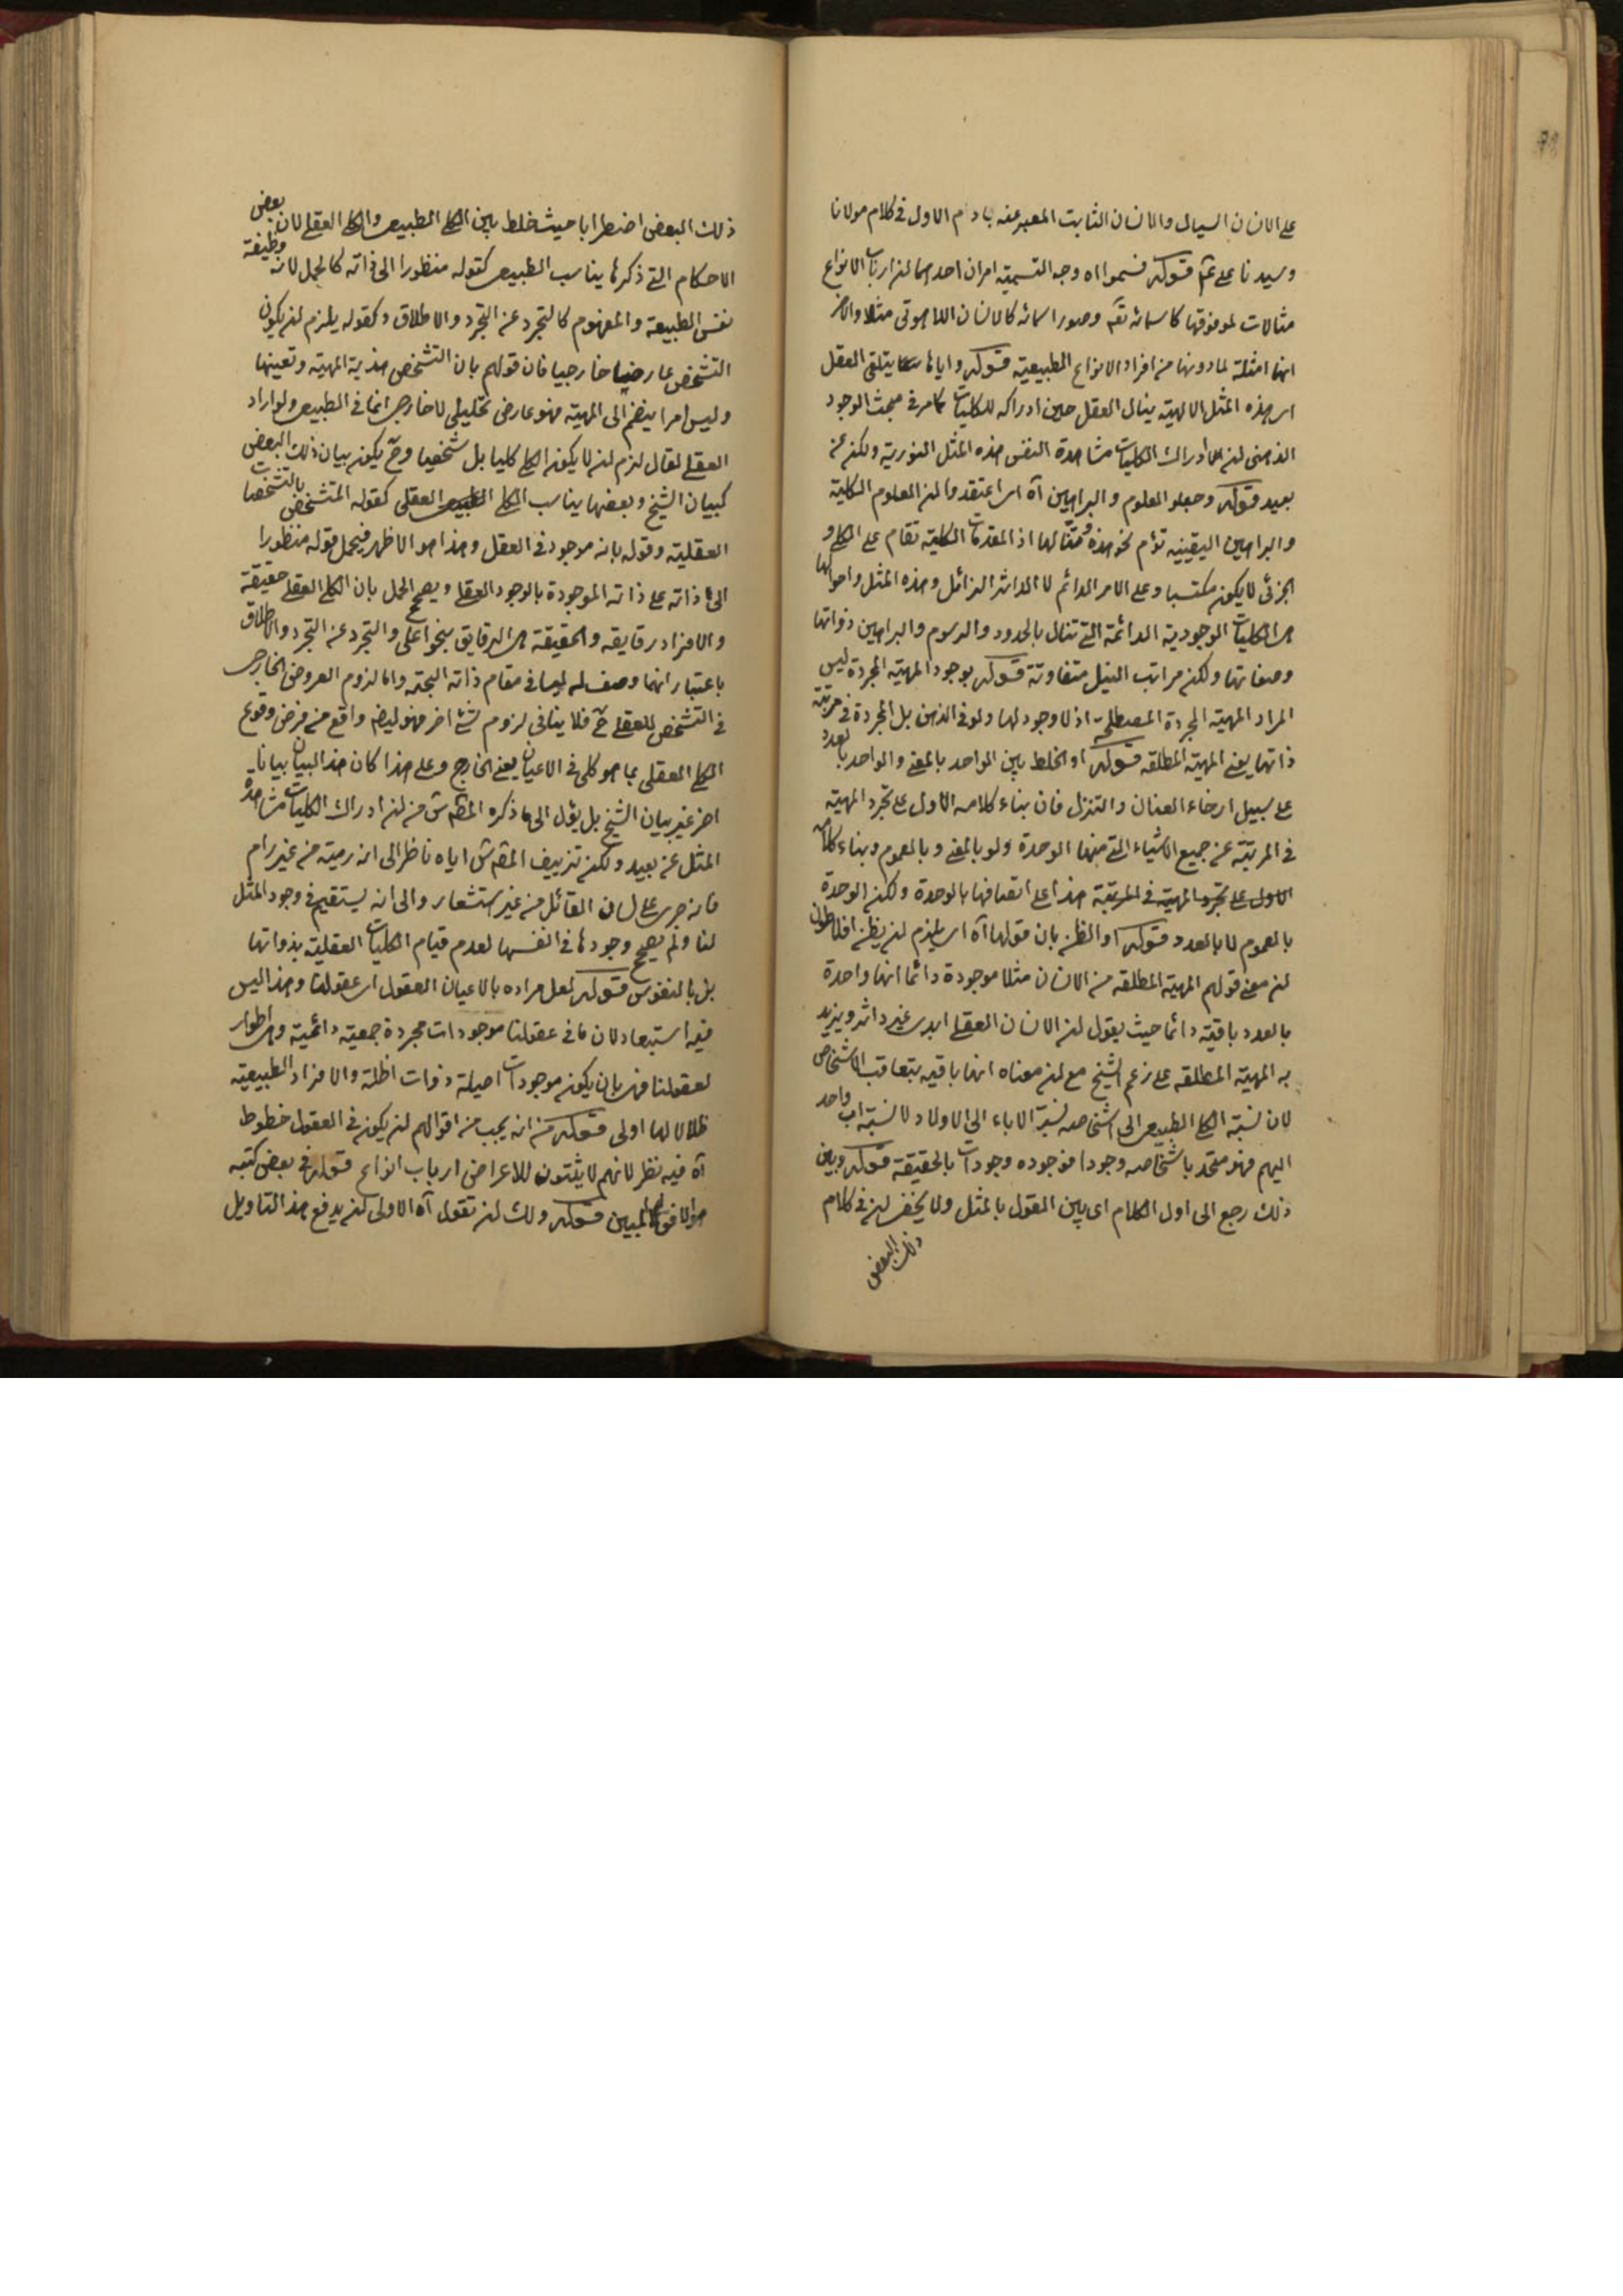 على الانسان السيال والانسان الثابت المعبر عنه بادم الاول في كلام مولانا
وسيدنا على ع قوله فسموا اه وجه التسمية امران احدهما ان ارباب الانواع
مثالات لما فوقها كاسمائه تع وصور اسمائه كالانسان اللاهوتى مثلا والاخر
انها امثلة لما دونها من افراد الانواع الطبيعية قوله واياها يتلقى العقل
اى هذه المثل الالهية ينال العقل حين ادراكه للكليات كما مر في مبحث الوجود
الذهنى ان ادراك الكليات مشاهدة النفس هذه المثل النورية ولكن عن
بعيد قوله وجعلوا العلوم والبراهين آه اى اعتقدوا ان العلوم الكلية
والبراهين اليقينيه تؤم نحو هذه ومثالها اذ المقدمات الكلية تقام على الكلى و
الجزئى لا يكون مكتسبا وعلى الامر الدائم لا الداثر الزائل وهذه المثل واحوالها
هى الكليات الوجودية الدائمة التى تنال بالحدود والرسوم والبراهين ذواتها
وصفاتها ولكن مراتب النيل متفاوتة قوله بوجود المهية المجردة ليس
المراد المهية المجردة المصطلحة اذ لا وجود لها ولو في الذهن بل المجردة في مرتبة
ذاتها يعنى المهية المطلقه قوله او الخلط بين الواحد بالمعنى والواحد بالعدد
على سبيل ارخاء العنان والتنزل فان بناء كلامه الاول على تجرد المهية
في المرتبة عن جميع الاشياء التى منها الوحدة ولو بالمعنى وبالعموم وبناء كلامه
الاول على تجرد المهية في المرتبة هذا على اتصافها بالوحدة ولكن الوحدة
بالعموم لا بالعدد قوله او الظن بان قولها آه اى يلزم ان يظن افلاطون
ان معنى قولهم المهية المطلقه من الانسان مثلا موجودة دائما انها واحدة
بالعدد باقية دائما حيث يقول ان الانسان العقلى ابدى غير داثر ويزيد
به المهية المطلقه على زعم الشيخ مع ان معناه انها باقيه بتعاقب الاشخاص
لان نسبة الكلى الطبيعى الى اشخاصه نسبة الاباء الى الاولاد لا نسبة اب واحد
اليهم فهو متحد باشخاصه وجودا فوجوده وجودات بالحقيقة قوله وبين
ذلك رجع الى اول الكلام اى بين القول بالمثل ولا يخفى ان في كلام
ذلك البعض
ذلك البعض اضطرابا حيث خلط بين الكلى الطبيعى والكلى العقلى لان بعض
الاحكام التى ذكرها يناسب الطبيعى كقوله منظورا الى ذاته كالحمل لانه وظيفة
نفس الطبيعة والمفهوم كالتجرد عن التجرد والاطلاق وكقوله يلزم ان يكون
التشخص عارضا خارجيا فان قولهم بان التشخص هذية المهية وتعينها
وليس امرا ينضم الى المهية فهو عارض تحليلى لا خارجى انما في الطبيعى ولو اراد
العقلى لقال لزم ان لا يكون الكلى كليا بل شخصيا وح يكون بيان ذلك البعض
كبيان الشيخ وبعضها يناسب الكلى العقلى كقوله المتشخص بالتشخصات
العقلية وقوله بانه موجود في العقل وهذا هو الاظهر فيحمل قوله منظورا
الى ذاته على ذاته الموجودة بالوجود العقلى ويصحح الحمل بان الكلى العقلى حقيقة
والافراد رقايقه والحقيقة هى الرقايق بنحو اعلى والتجرد عن التجرد والاطلاق
باعتبار انهما وصف له ليسا في مقام ذاته البحتة واما لزوم العروض الخارجى
في التشخص للعقلى ح فلا ينافى لزوم شئ اخر فهو ايضا واقع من فرض وقوع
الكلى العقلى بما هو كلى في الاعيان يعنى الخارج وعلى هذا كان هذا البيان بيانا
اخر غير بيان الشيخ بل يؤل الى ما ذكره المص س من ان ادراك الكليات مشاهدة
المثل عن بعيد ولكن تزييف المص س اياه ناظر الى انه رمية من غير رام
فانه جرى على لسان القائل من غير استشعار والى انه يستقيم في وجود المثل
لنا ولم يصحح وجودها في انفسها لعدم قيام الكليات العقلية بذواتها
بل بالنفوس قوله لعل مراده بالاعيان العقول اى عقولنا وهذا ليس
فيه استبعاد لان ما في عقولنا موجودات مجردة جمعية دائمية وهى اطوار
لعقولنا فهى بان يكون موجودات اصيلة ذوات اظلة والافراد الطبيعية
ظلالا لها اولى قوله من انه يجب من اقوالهم ان يكون في العقول خطوط
آه فيه نظر لانهم لا يثبتون للاعراض ارباب انواع قوله في بعض كتبه
هو الافق المبين قوله ولك ان تقول آه الاولى ان يدفع هذا التاويل